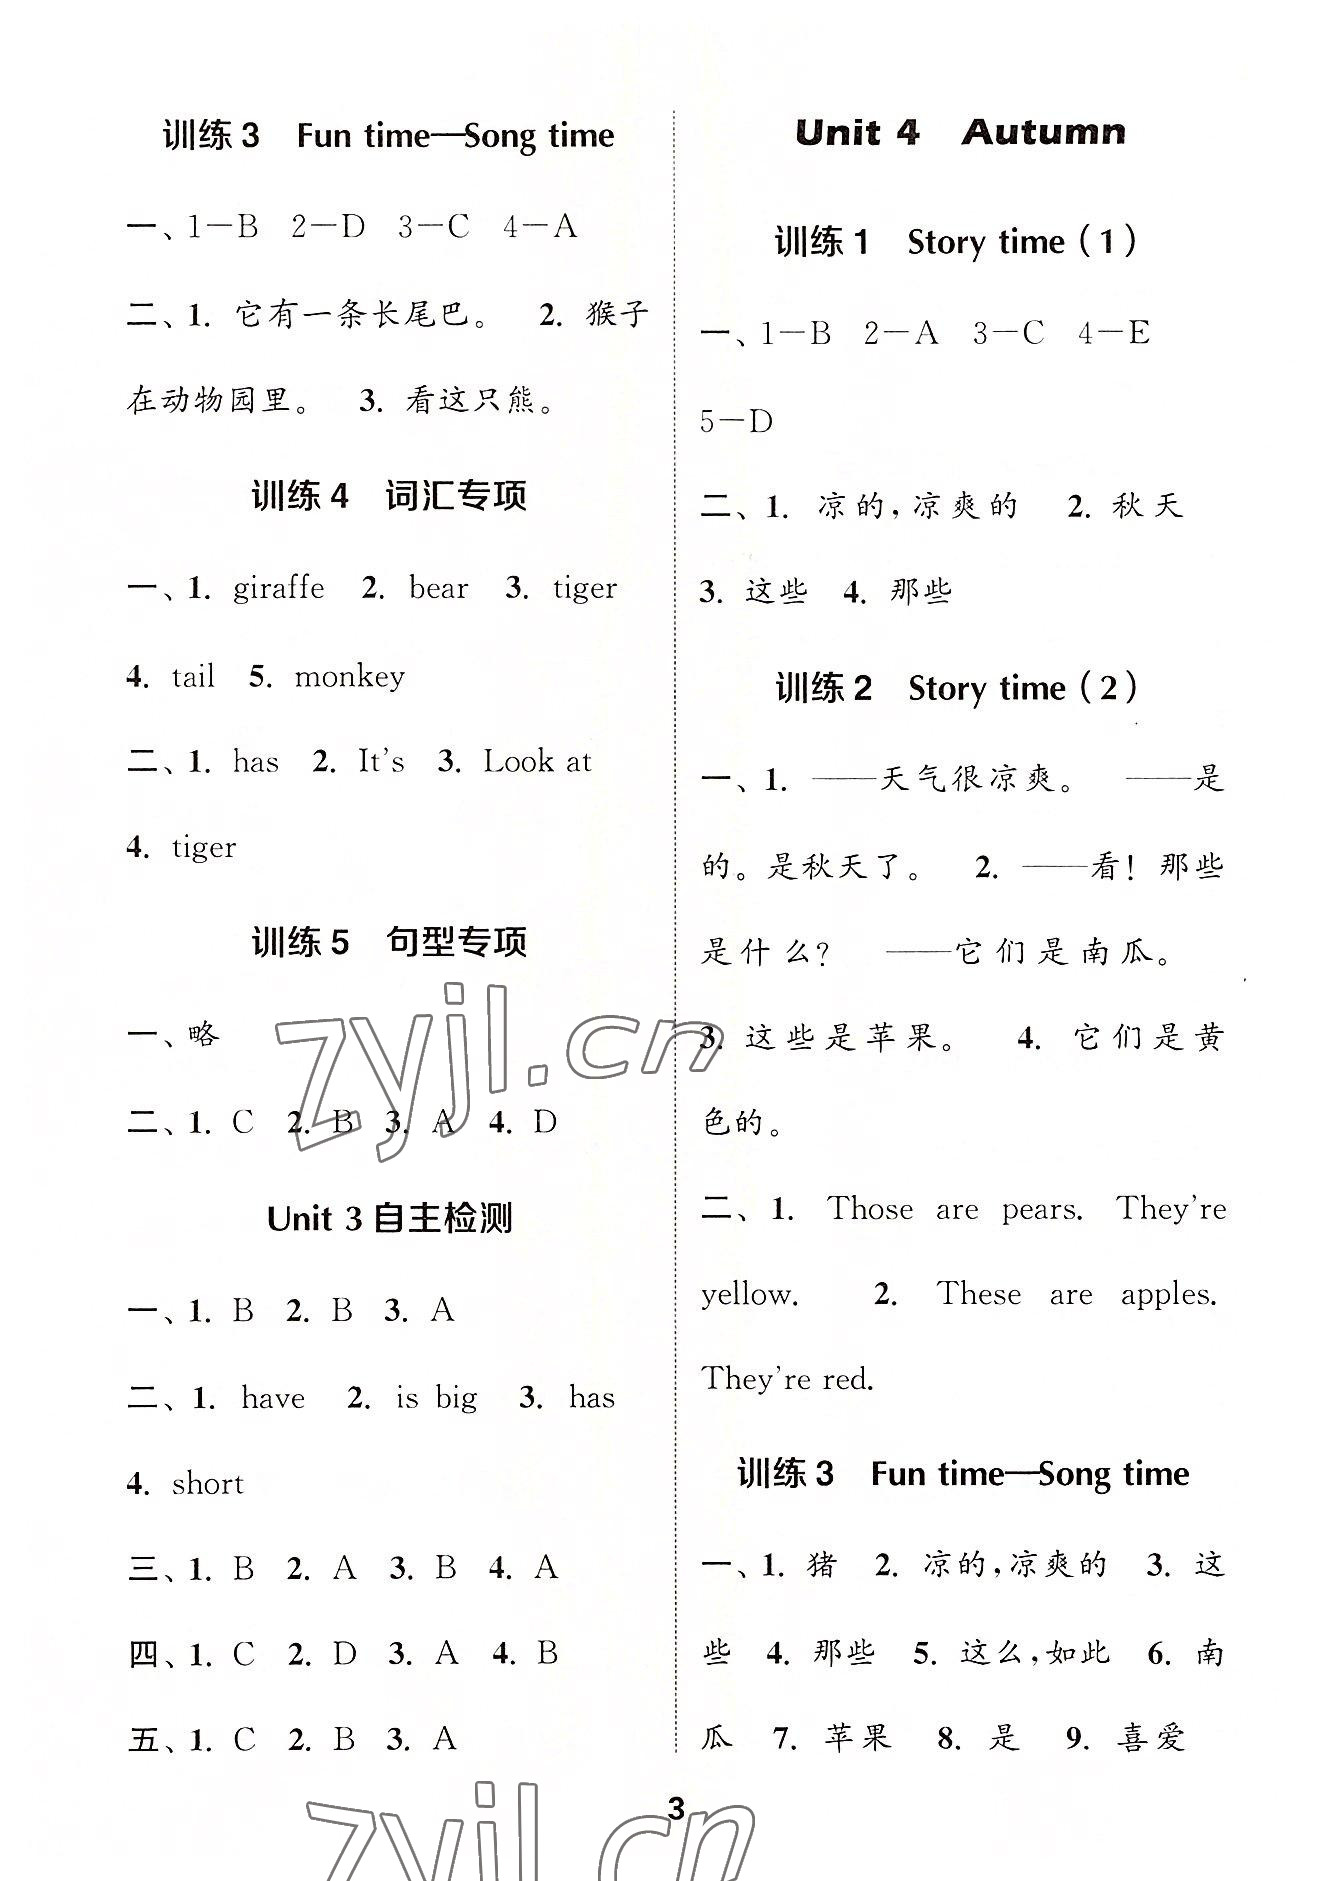 训练3 Fun time—Song time
一、1—B 2—D 3—C 4—A
二、1. 它有一条长尾巴。 2. 猴子
在动物园里。 3. 看这只熊。
训练4 词汇专项
一、1. giraffe 2. bear 3. tiger
4. tail 5. monkey
二、1. has 2. It's 3. Look at
4. tiger
训练5 句型专项
一、略
二、1. C 2. B 3. A 4. D
Unit 3 自主检测
一、1. B 2. B 3. A
二、1. have 2. is big 3. has
4. short
三、1. B 2. A 3. B 4. A
四、1. C 2. D 3. A 4. B
五、1. C 2. B 3. A
Unit 4 Autumn
训练1 Story time(1)
一、1—B 2—A 3—C 4—E
5—D
二、1. 凉的,凉爽的 2. 秋天
3. 这些 4. 那些
训练2 Story time(2)
一、1. ——天气很凉爽。 ——是
的。是秋天了。 2. ——看!那些
是什么? ——它们是南瓜。
3. 这些是苹果。 4. 它们是黄
色的。
二、1. Those are pears. They're
yellow. 2. These are apples.
They're red.
训练3 Fun time—Song time
一、1. 猪 2. 凉的,凉爽的 3. 这
些 4. 那些 5. 这么,如此 6. 南
瓜 7. 苹果 8. 是 9. 喜爱
3
zyjl.cn
zyjl.cn